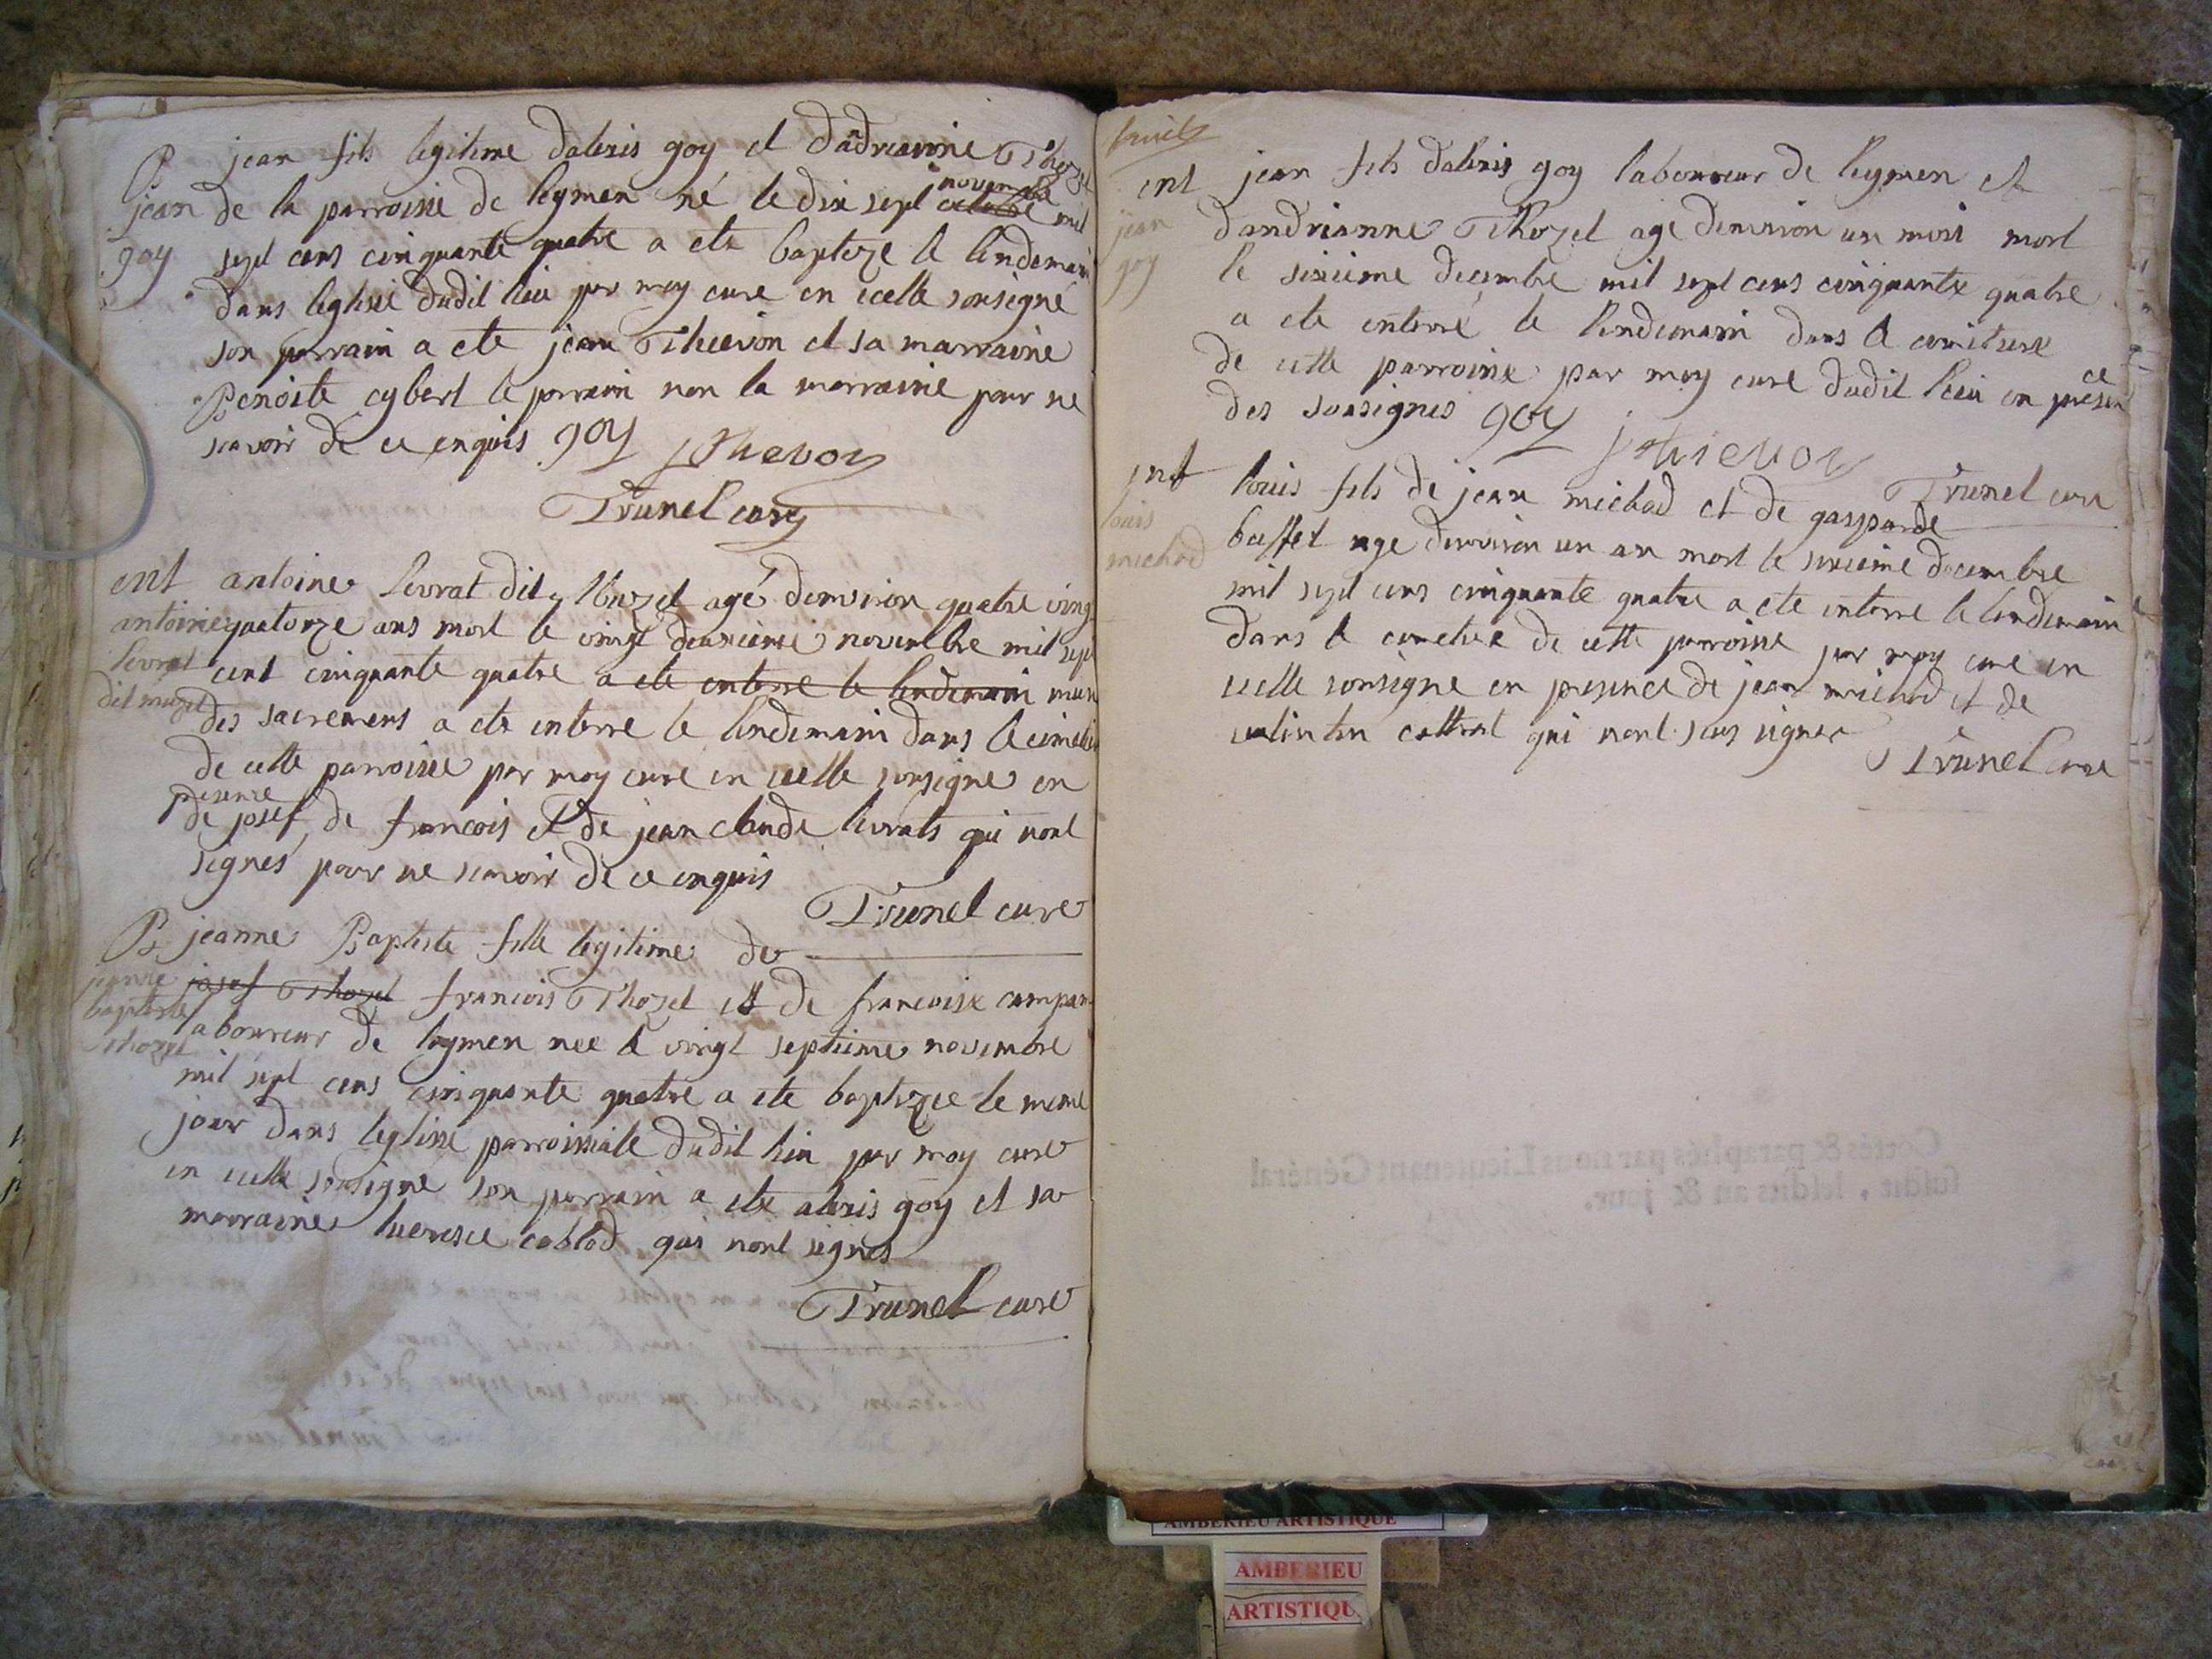 B jean fils legitime dalexis goy et dadrianne Thozet
jean de la parroisse de leymen né le dix sept octobre novembre mil
goy sept cens cinquante quatre a ete baptize le lendemain
dans leglise dudit lieu par moy curé en icelle sousigné
son parrain a ete jean Thievon et sa marraine
Benoite cybert le parrain non la marraine pour ne
scavoir de ce enquis goy j thevon
Trunel curé
ent antoine levrat dit Muzet agé denviron quatre vingt
antoine quatorze ans mort le vingt deuxieme novembre mil sept
levrat cent cinquante quatre a ete enterre le lendemain muni
dit muzet des sacremens a ete enterre le lendemain dans le cimetier
de cette parroisse par moy cure en icelle sousigne en
presence
de josef de francois et de jean claude levrats qui nont
signés pour ne scavoir de ce enquis
Trunel cure
B jeanne Baptiste fille legitime de
jeanne josef Thozet francois Thozet et de francoise campan
baptiste laboureur de leymen nee le vingt septieme novembre
thozet
mil sept cens cinquante quatre a ete baptizee le meme
jour dans leglise parroissiale dudit lieu par moy cure
en icelle sousigne son parrain a ete alexis goy et sa
marraine coblod qui nont signes
Trunel cure
ent jean fils dalexis goy laboureur de leymen et
jean dandrianne Thozet age denviron un mois mort
goy le sixieme decembre mil sept cens cinquante quatre
a ete enterré le lendemain dans le cimitiere
de cette parroisse par moy cure dudit lieu en presence
des sousignes goy j thievon
Trunel cure
ent louis fils de jean michod et de gasparde
louis buffet age denviron un an mort le sixieme decembre
michod mil sept cens cinquante quatre a ete enterre le lendemain
dans le cimetiere de cette parroisse par moy cure en
icelle sousigne en presence de jean michod et de
valentin cottrat qui nont scus signer
Trunel cure
Cottés & paraphés par nous Lieutenant Général
susdit, lesdits an & jour.
AMBERIEU ARTISTIQUE
AMBERIEU
ARTISTIQU